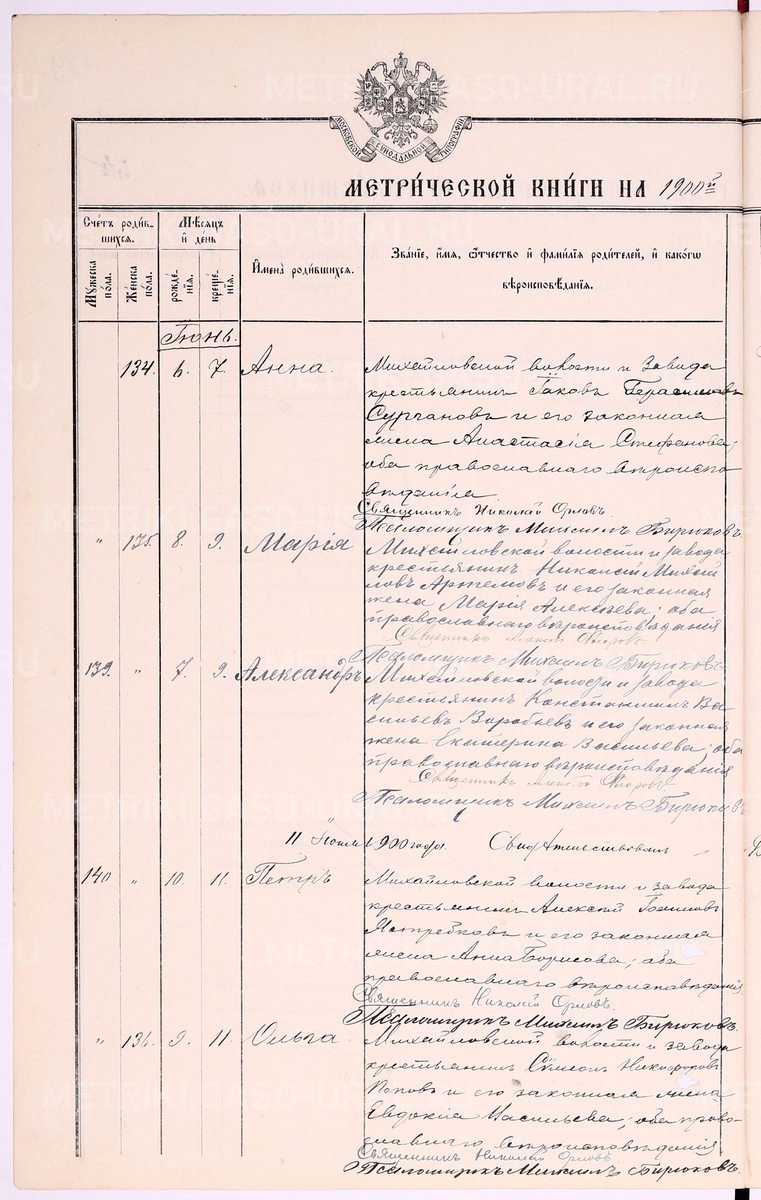 METRIKI.GASO-URAL.RU
МОСКОВСКОЙ СѴНОДАЛЬНОЙ ТИПОГРАФІИ
МЕТРИЧЕСКОЙ КНИГИ НА 1900й
Счетъ родившихся.
Мѣсяцъ и день
Имена родившихся.
Званіе, имя, отчество и фамилія родителей, и какого вѣроисповѣданія.
Мужеска пола.
Женска пола.
рожденія.
крещенія.
Іюнь.
134. 6. 7. Анна.
Михайловской волости и завода
крестьянинъ Іаковъ Герасимовъ
Сурчановъ и его законная
жена Анастасія Стефанова;
оба православнаго вѣроиспо-
вѣданія
Священникъ Николай Орловъ.
Псаломщикъ Михаилъ Бирюковъ.
" 135. 8. 9. Марія
Михайловской волости и завода
крестьянинъ Николай Михай
ловъ Артемовъ и его законная
жена Марія Алексѣева; оба
православнаго вѣроисповѣданія
Священникъ Орловъ
Псаломщикъ Михаилъ Бирюковъ
139. " 7. 9. Александръ
Михайловской волости и завода
крестьянинъ Константинъ Ва
сильевъ Воробьевъ и его законная
жена Екатерина Васильева; оба
православнаго вѣроисповѣданія
Священникъ Орловъ
Псаломщикъ Михаилъ Бирюковъ
11 1900 года Свидѣтельствовалъ
140 " 10. 11. Петръ
Михайловской волости и завода
крестьянинъ Алексій Іоанновъ
Ястребковъ и его законная
жена Анна Борисова; оба
православнаго вѣроисповѣданія
Священникъ Николай Орловъ.
Псаломщикъ Михаилъ Бирюковъ.
" 136. 9. 11. Ольга.
Михайловской волости и завода
крестьянинъ Сѵмеонъ Никифоровъ
Поповъ и его законная жена
Евдокія Васильева; оба право-
славнаго вѣроисповѣданія
Священникъ Николай Орловъ
Псаломщикъ Михаилъ Бирюковъ.